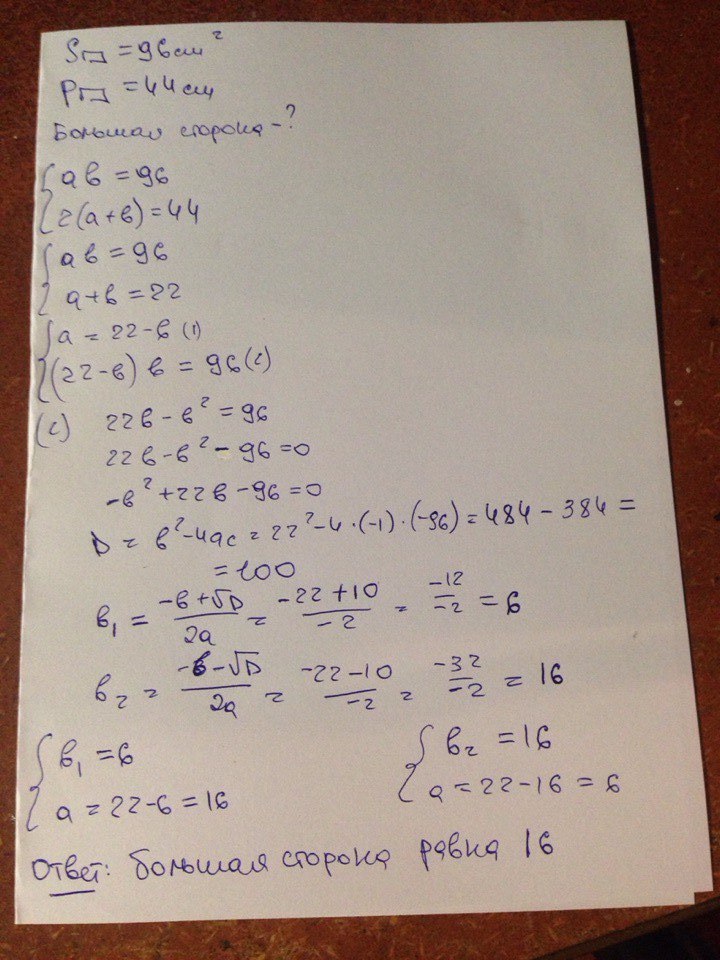 S▭ = 96 см²
P▭ = 44 см
Большая сторона - ?
{ ав = 96
2(а+в) = 44
{ ав = 96
а+в = 22
{ а = 22-в (1)
(22-в) в = 96 (2)
(2) 22в - в² = 96
22в - в² - 96 = 0
-в² + 22в - 96 = 0
D = в² - 4ac = 22² - 4·(-1)·(-96) = 484 - 384 =
= 100
в₁ = (-в+√D)/(2a) = (-22+10)/(-2) = (-12)/(-2) = 6
в₂ = (-в-√D)/(2a) = (-22-10)/(-2) = (-32)/(-2) = 16
{ в₁ = 6
а = 22-6 = 16
{ в₂ = 16
а = 22-16 = 6
Ответ: большая сторона равна 16